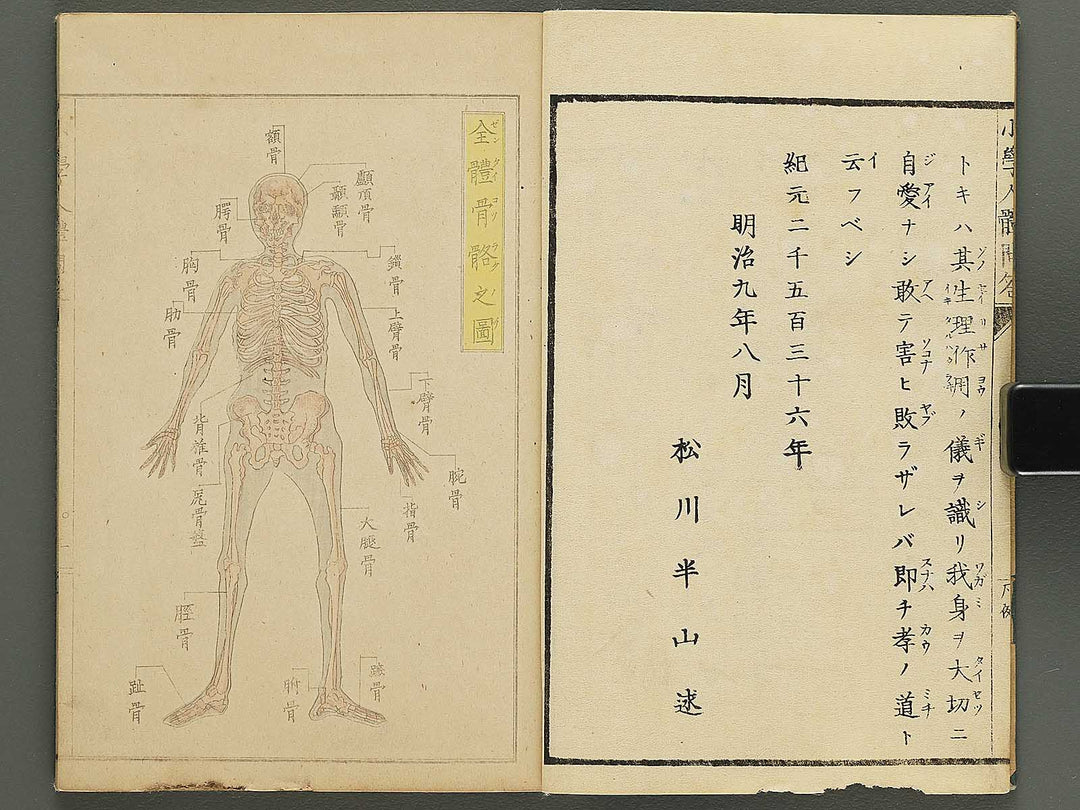 トキハ其生理作用ノ儀ヲ識リ我身ヲ大切ニ
自愛ナシ敢テ害ヒ敗ラザレバ即チ孝ノ道ト
云フベシ
紀元二千五百三十六年
明治九年八月
松川半山逑
全體骨骼之圖
ゼンタイコツラクノヅ
額骨
顱頂骨
顳顬骨
腭骨
鎖骨
胸骨
上臂骨
肋骨
下臂骨
背椎骨
腕骨
指骨
尻骨盤
大腿骨
脛骨
趾骨
跗骨